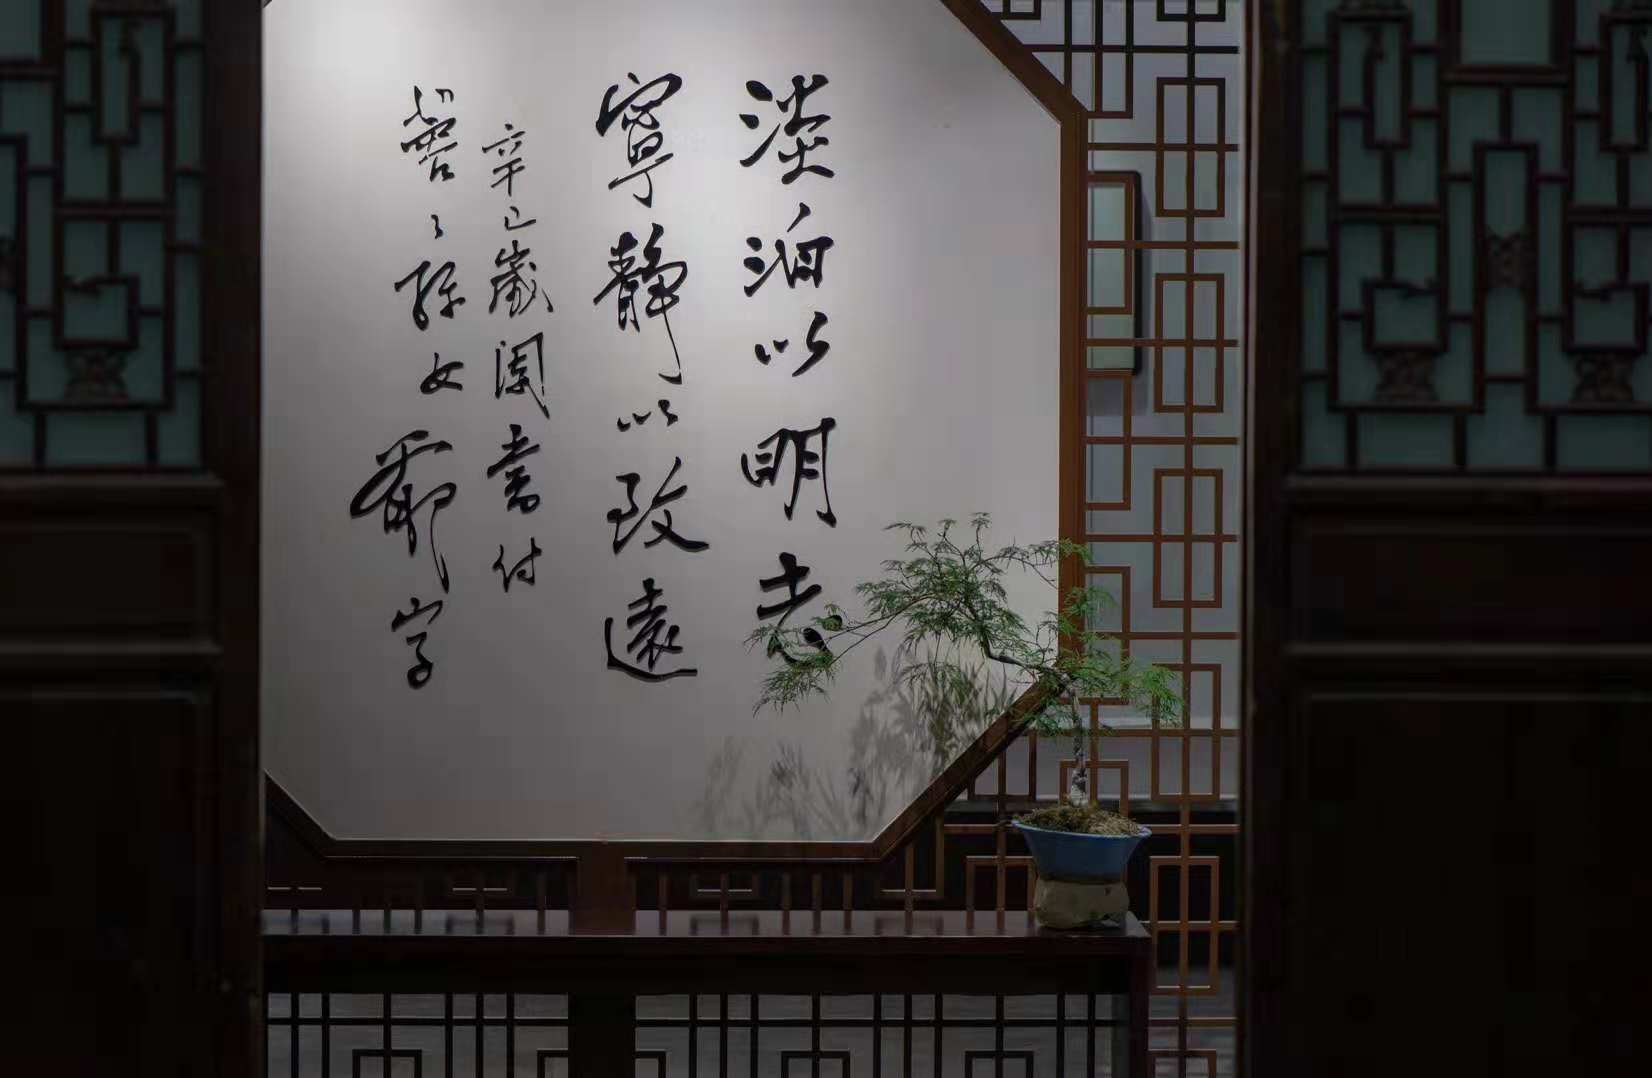 淡泊以明志
寧靜以致遠
辛巳歲闌書付
孫女 爺字